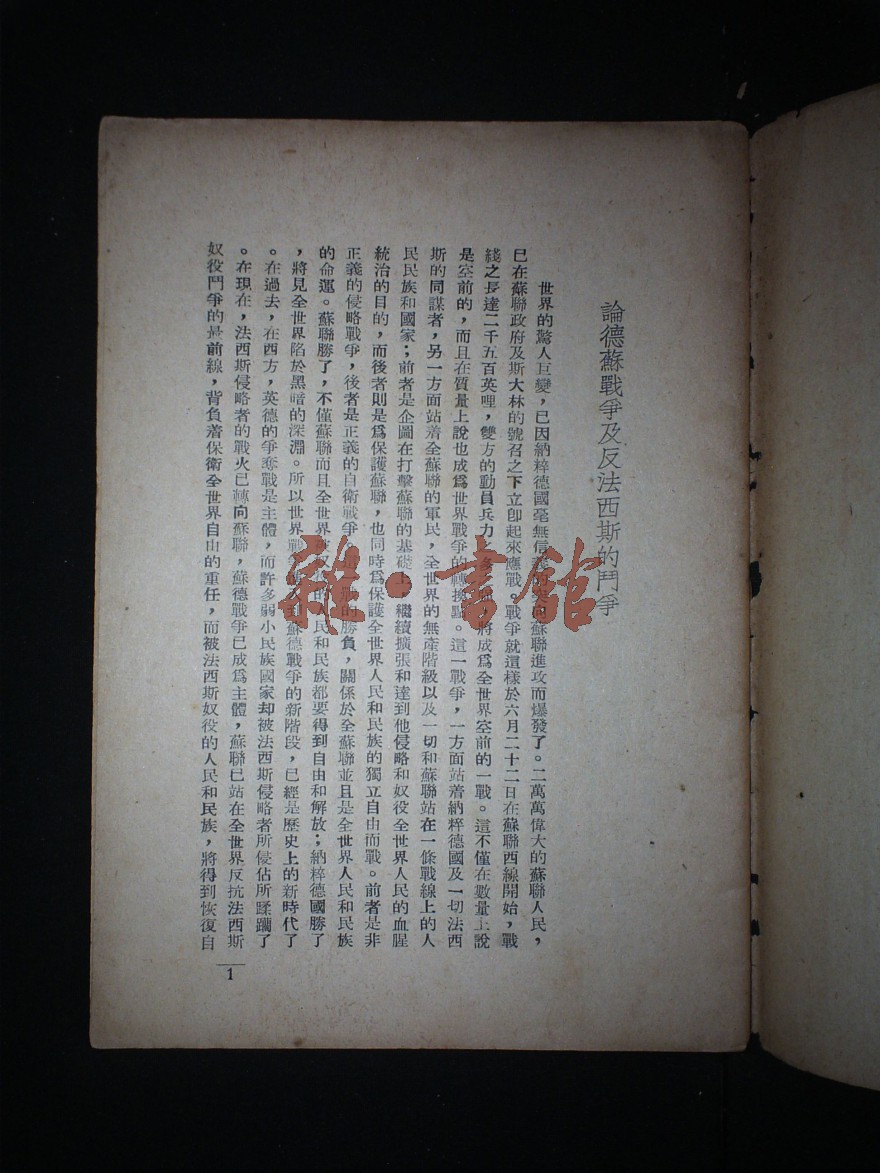 論德蘇戰爭及反法西斯的鬥爭
世界的驚人巨變，已因納粹德國毫無信義的突向蘇聯進攻而爆發了。二萬萬偉大的蘇聯人民，
已在蘇聯政府及斯大林的號召之下立即起來應戰。戰爭就這樣於六月二十二日在蘇聯西線開始，戰
綫之長達二千五百英哩，雙方的動員兵力之多，將成為全世界空前的一戰。這不僅在數量上說
是空前的，而且在質量上說也成爲世界戰爭的轉換點。這一戰爭，一方面站着納粹德國及一切法西
斯的同謀者，另一方面站着全蘇聯的軍民，全世界的無產階級以及一切和蘇聯站在一條戰線上的人
民民族和國家；前者是企圖在打擊蘇聯的基礎上，繼續擴張和達到他侵略和奴役全世界人民的血腥
統治的目的，而後者則是爲保護蘇聯，也同時爲保護全世界人民和民族的獨立自由而戰。前者是非
正義的侵略戰爭，後者是正義的自衛戰爭。的勝負，關係於全蘇聯並且是全世界人民和民族
的命運。蘇聯勝了，不僅蘇聯而且全世界的人民和民族都要得到自由和解放；納粹德國勝了
，將見全世界陷於黑暗的深淵。所以世界戰爭到蘇德戰爭的新階段，已經是歷史上的新時代了
。在過去，在西方，英德的爭奪戰是主體，而許多弱小民族國家却被法西斯侵略者所侵佔所蹂躪了
。在現在，法西斯侵略者的戰火已轉向蘇聯，蘇德戰爭已成爲主體，蘇聯已站在全世界反抗法西斯
奴役鬥爭的最前線，背負着保衛全世界自由的重任，而被法西斯奴役的人民和民族，將得到恢復自
1
雜·書館